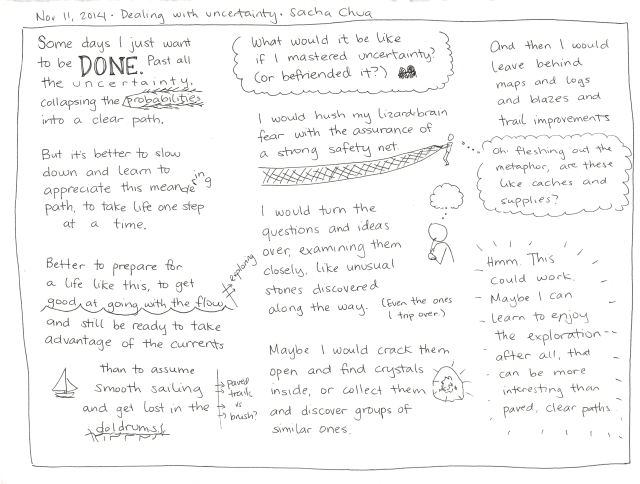 Nov 11, 2014 · Dealing with uncertainty · Sacha Chua
Some days I just want
to be DONE. Past all
the uncertainty,
collapsing the probabilities
into a clear path.
But it's better to slow
down and learn to
appreciate this meandering
path, to take life one step
at a time.
Better to prepare for
a life like this, to get
good at going with the flow
exploring
and still be ready to take
advantage of the currents
than to assume
smooth sailing
and get lost in the
doldrums!
paved
trails
vs
brush?
What would it be like
if I mastered uncertainty?
(or befriended it?)
I would hush my lizard brain
fear with the assurance of
a strong safety net
I would turn the
questions and ideas
over, examining them
closely, like unusual
stones discovered
along the way.
(Even the ones
I trip over.)
Maybe I would crack them
open and find crystals
inside, or collect them
and discover groups of
similar ones.
And then I would
leave behind
maps and logs
and blazes and
trail improvements
Oh! fleshing out the
metaphor, are these
like caches and
supplies?
Hmm. This
could work.
Maybe I can
learn to enjoy
the exploration--
after all, that
can be more
interesting than
paved, clear paths.